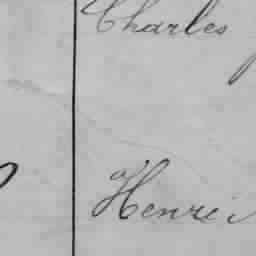 Charles
Henri